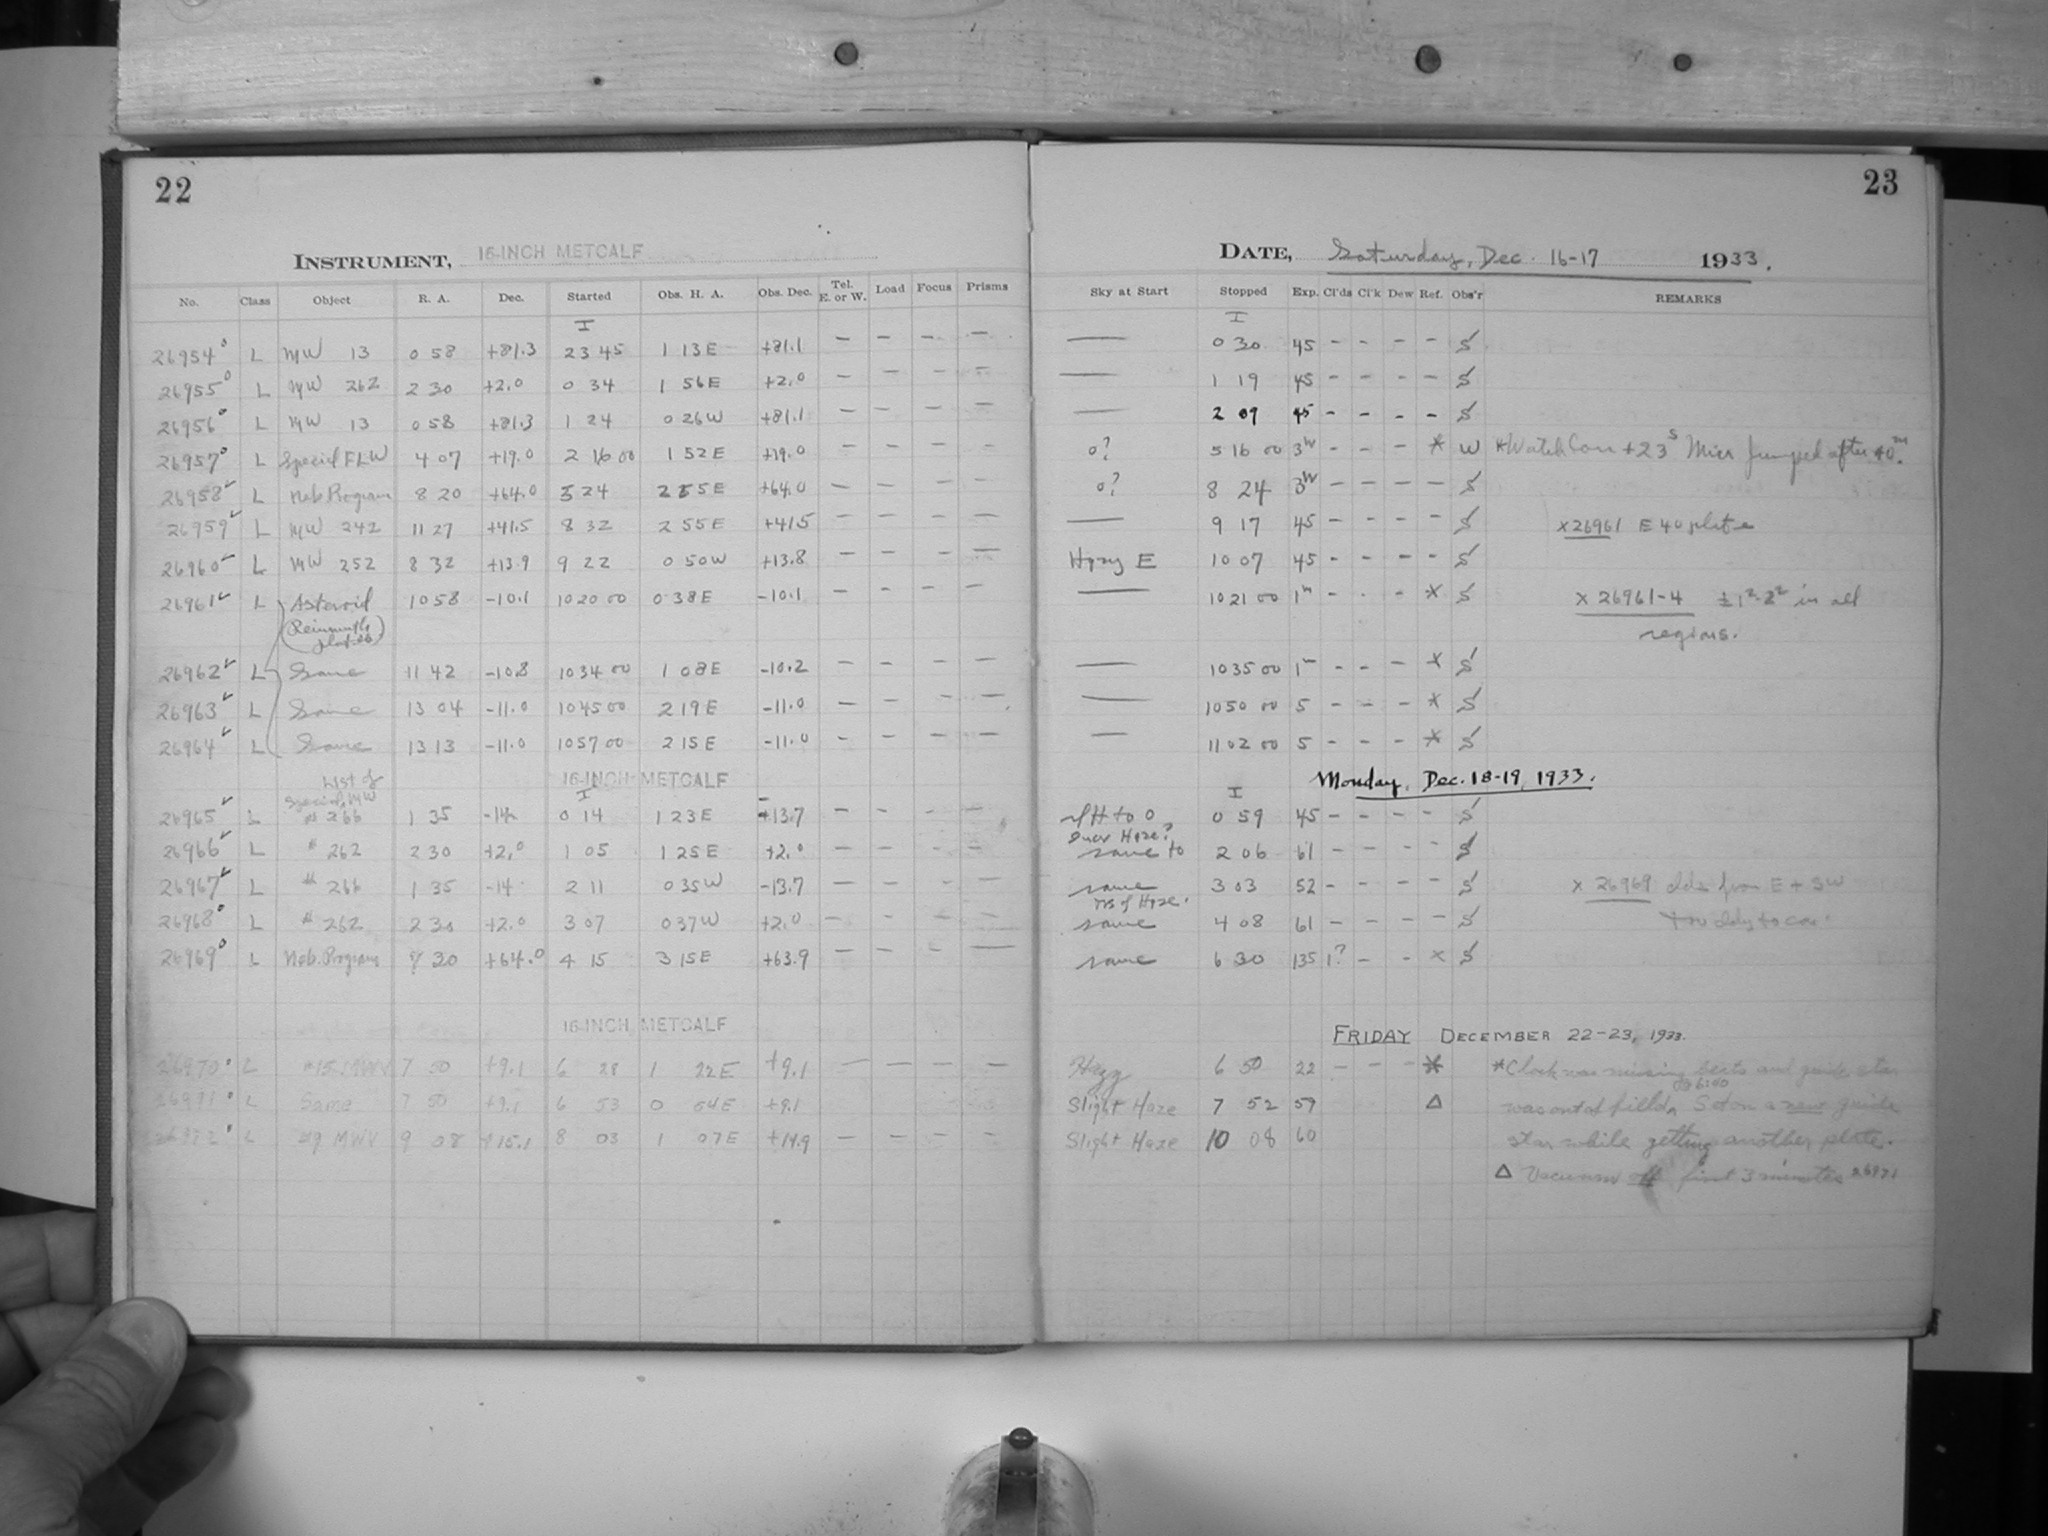 22
INSTRUMENT, 16-INCH METCALF
No. Class Object R. A. Dec. Started Obs. H. A. Obs. Dec. Tel. E. or W. Load Focus Prisms
I
26954 L MW 13 0 58 +81.3 23 45 1 13 E +81.1 — — — —
26955 L MW 262 2 30 +2.0 0 34 1 56 E +2.0 — — — —
26956 L MW 13 0 58 +81.3 1 24 0 26 W +81.1 — — — —
26957 L Special FLW 4 07 +19.0 2 16 00 1 52 E +19.0 — — — —
26958 L Neb. Program 8 20 +64.0 5 24 2 55 E +64.0 — — — —
26959 L MW 242 11 27 +41.5 8 32 2 55 E +41.5 — — — —
26960 L MW 252 8 32 +13.9 9 22 0 50 W +13.8 — — — —
26961 L Asteroid 10 58 -10.1 10 20 00 0 38 E -10.1 — — — —
(Reinmuth
plates)
26962 L Same 11 42 -10.8 10 34 00 1 08 E -10.2 — — — —
26963 L Same 13 04 -11.0 10 45 00 2 19 E -11.0 — — — —
26964 L Same 13 13 -11.0 10 57 00 2 15 E -11.0 — — — —
16-INCH METCALF
List of
Special MW
I
26965 L # 266 1 35 -14 0 14 1 23 E -13.7 — — — —
26966 L # 262 2 30 +2.0 1 05 1 25 E +2.0 — — — —
26967 L # 266 1 35 -14 2 11 0 35 W -13.7 — — — —
26968 L # 262 2 30 +2.0 3 07 0 37 W +2.0 — — — —
26969 L Neb. Program 30 +64.0 4 15 3 15 E +63.9 — — — —
16-INCH METCALF
26970 L #15 MWV 7 50 +9.1 6 28 1 22 E +9.1 — — — —
26971 L Same 7 50 +9.1 6 53 0 54 E +9.1
26972 L #9 MWV 9 08 +15.1 8 03 1 07 E +14.9 — — — —
23
DATE, Saturday, Dec. 16-17 1933.
Sky at Start Stopped Exp. Cl'ds Cl'k Dew Ref. Obs'r REMARKS
I
— 0 30 45 - - - - S
— 1 19 45 - - - - S
— 2 09 45 - - - - S
0? 5 16 00 3h - - - * W *Watch Corr +23s Micr jumped after 40m.
0? 8 24 3h - - - - S
— 9 17 45 - - - - S x26961 E 40 plate
Hazy E 10 07 45 - - - - S
— 10 21 00 1m - - - * S x 26961-4 in all
regions.
— 10 35 00 1m - - - * S
— 10 50 00 5 - - - * S
— 11 02 00 5 - - - * S
Monday, Dec. 18-19, 1933.
I
H to 0 0 59 45 - - - - S
over Haze?
same to 2 06 61 - - - - S
same 3 03 52 - - - - S x 26969 clds from E + SW
of Haze.
same 4 08 61 - - - - S
same 6 30 135 1? - - x S
FRIDAY DECEMBER 22-23, 1933.
Hazy 6 50 22 - - - * *Clock was missing beats and guide star
Slight Haze 7 52 59 Δ was out of field. Set on a new guide
Slight Haze 10 08 60 star while getting another plate.
Δ Vacuum off first 3 minutes 26971